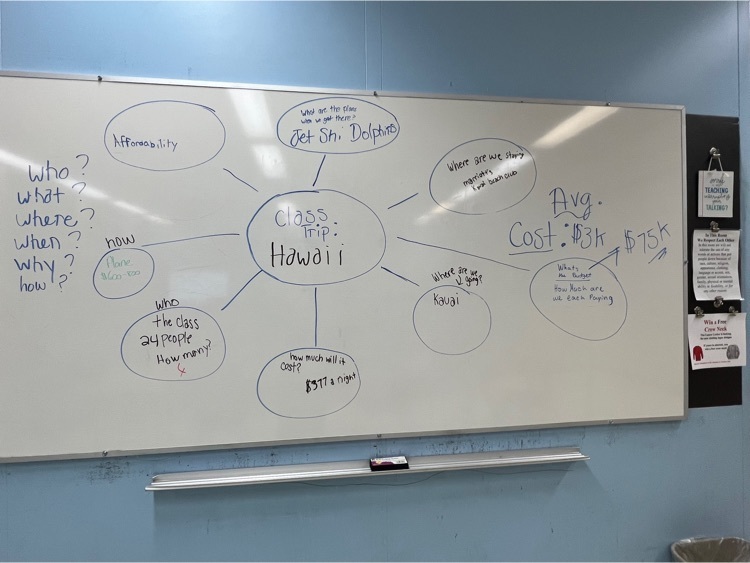 who?
what?
where?
when?
why?
how?
Affordability
What are the plans
when we get there?
Jet Ski Dolphins
Where are we staying
marriott
beach club
Class
Trip:
Hawaii
Avg.
Cost: $3K
$75K
how
Plane
$600-
who
the class
24 people
How many?
how much will it
cost?
$377 a night
Where are we
going?
Kauai
What's
the Budget
How Much are
we each Paying
TEACHING
TALKING?
In This Room
We Respect Each Other
Win a Free
Crew Neck